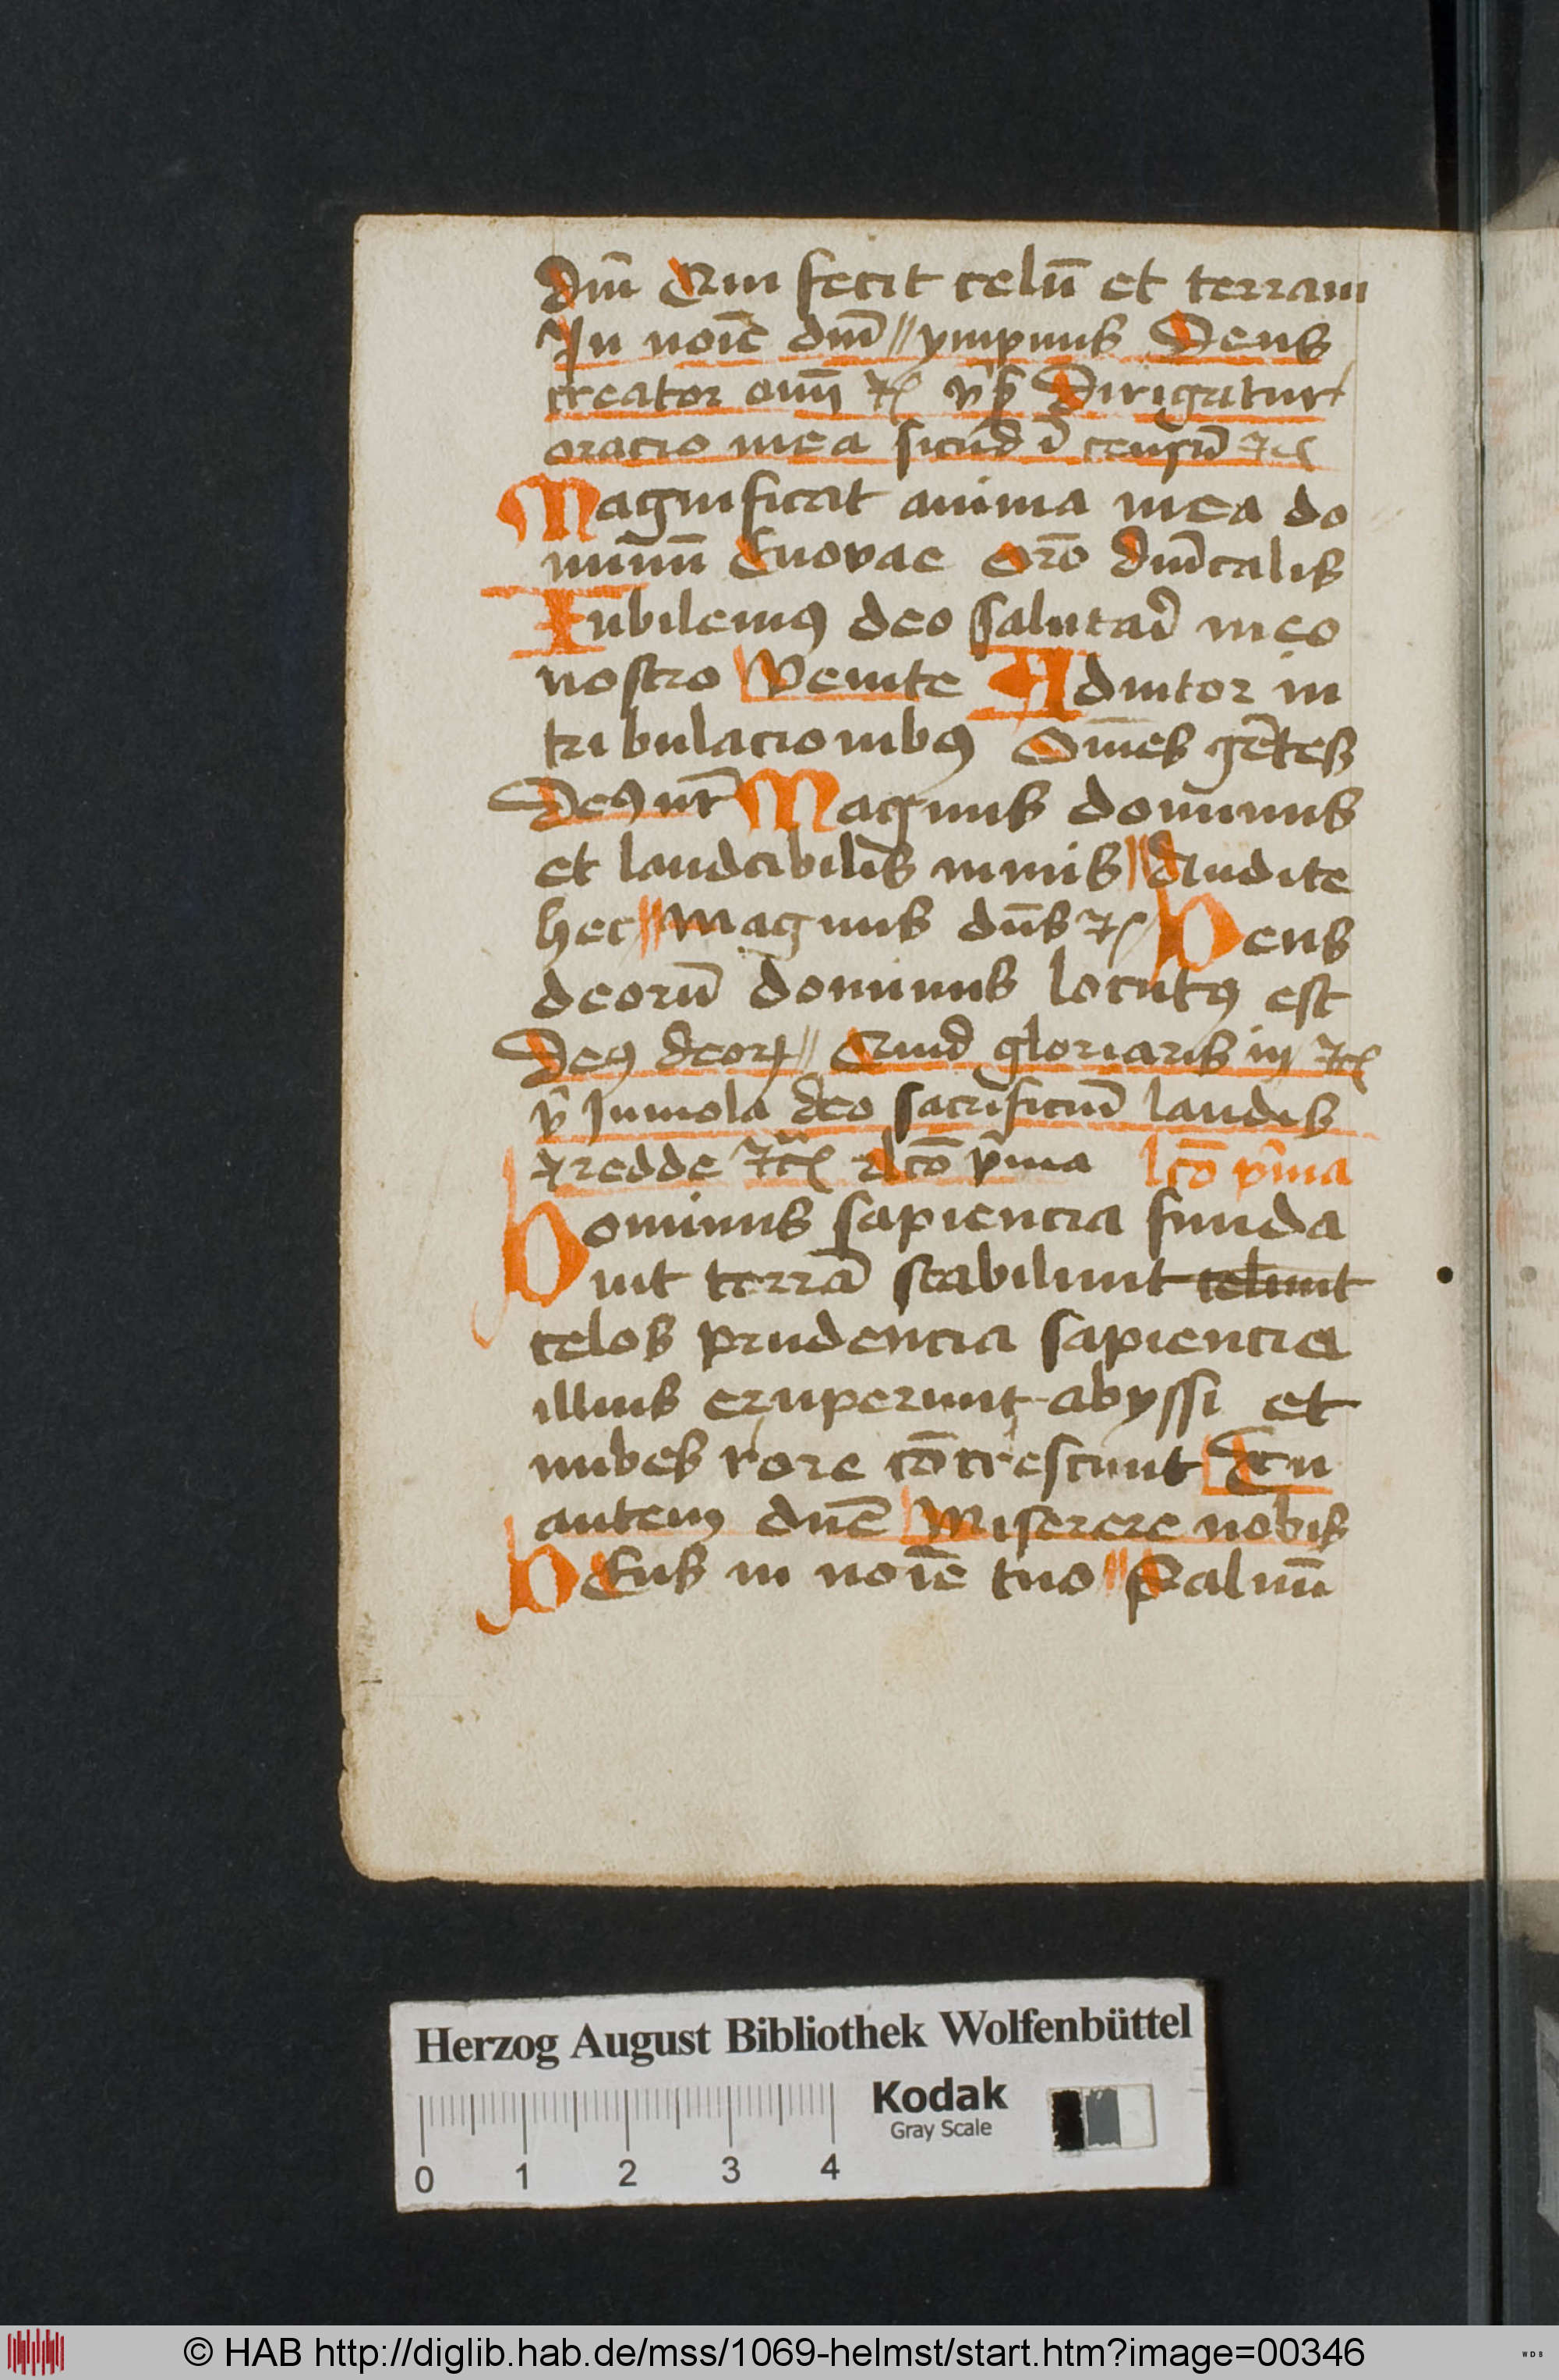 dm̄ Qui fecit celū et terram
In noīe dm̄ // ympnus Deus
creator om̄ ⁊c v̄s Dirigatur
oracio mea sicud ī censū ⁊c
Magnificat anima mea do
minū Euovae Oro̅ dm̄icalis
Iubilemꝰ deo salutaī meo
nostro Venite Adiutor in
tribulacionibꝰ Om̄es gētes
Deꝰ nr̄ Magnus dominus
et laudabilis nimis // Audite
hec // Magnus dn̄s ⁊c Deus
deorū dominus locutꝰ est
Deꝰ deoꝝ // Quid gloriaris in ⁊c
v̄ Immola deo sacrificiū laudis
⁊ redde ⁊c̄ lco̅ p̄ma lco̅ p̄ma
Dominus sapiencia funda
uit terrā stabiliuit celuut
celos prudencia sapiencia
illius eruperunt abyssi et
nubes rore cōcrescunt Tu
autem dn̄e Miserere nobis
DEus in noīe tuo // Saluū
Herzog August Bibliothek Wolfenbüttel
Kodak
Gray Scale
0 1 2 3 4
© HAB http://diglib.hab.de/mss/1069-helmst/start.htm?image=00346
WDB